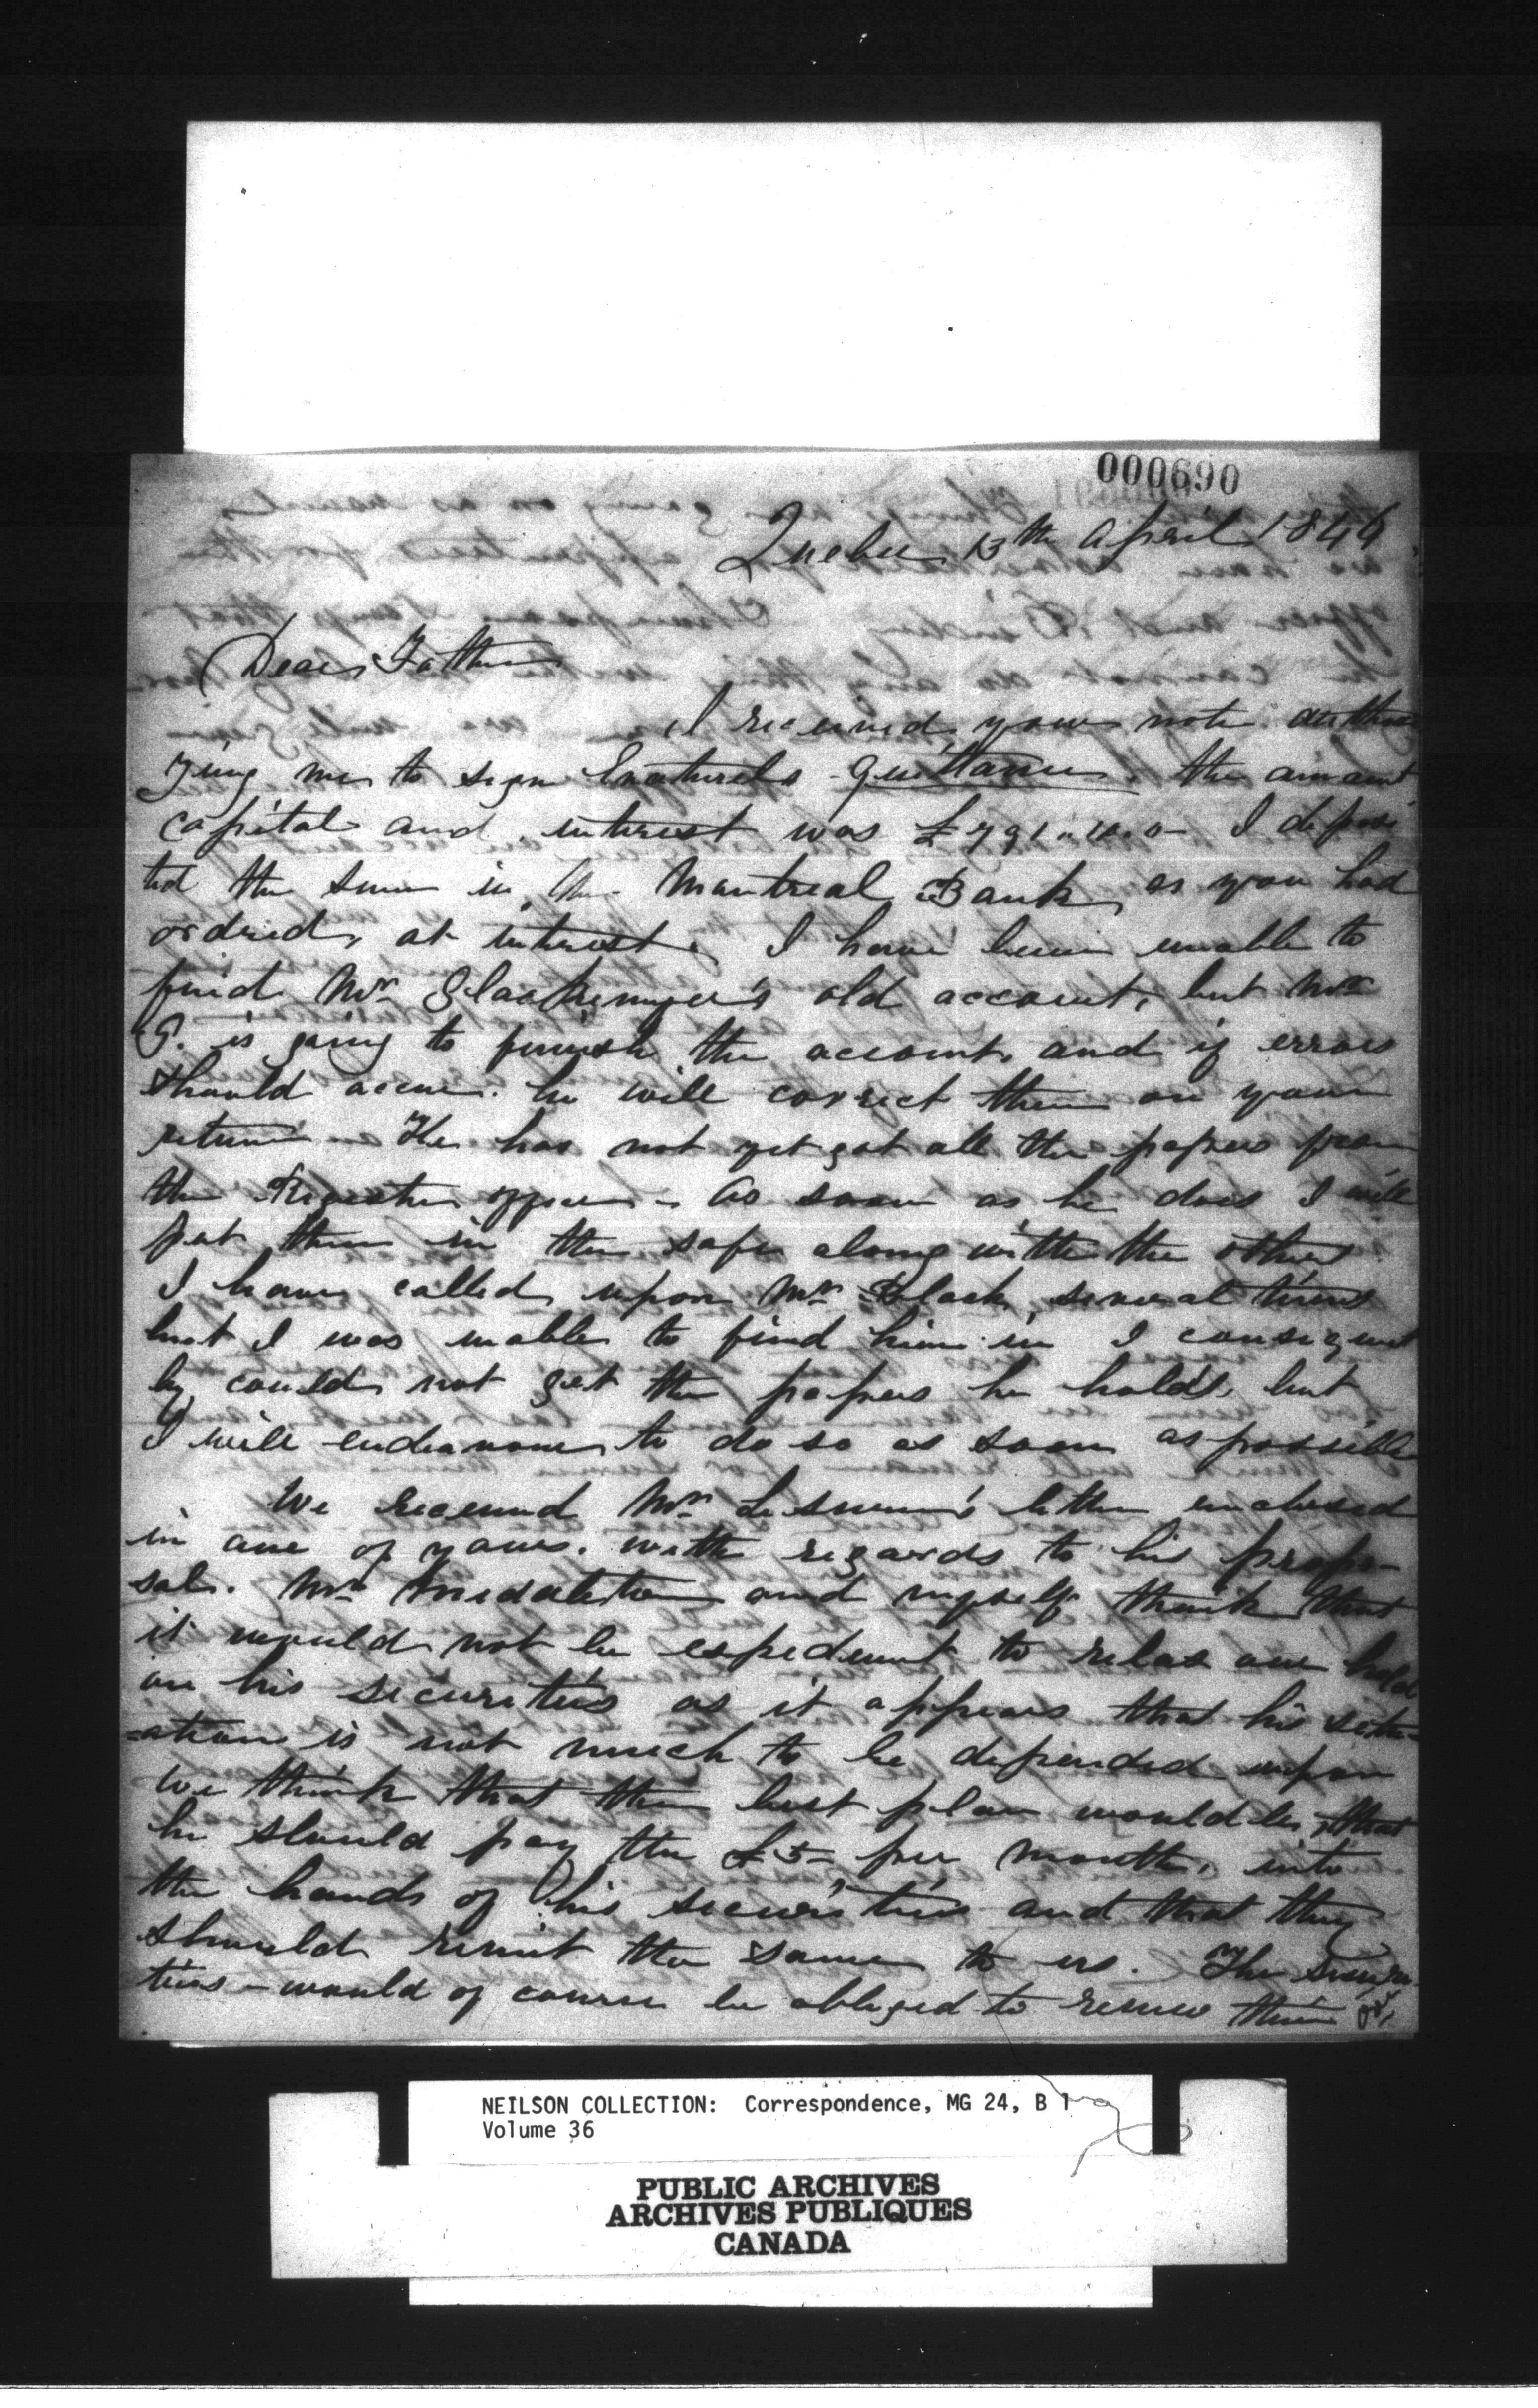 000690
Quebec 13th April 1846
Dear Father
I received your note authori
zing me to sign Enaturels quittance. the amount
capital and interest was £791.10.0 - I deposi
ted the sum in the Montreal Bank, as you had
ordred, at interest. I have been unable to
find Mr Glackemeyer's old account, but Mr
G. is going to finish the account, and if errors
should occur. he will correct them on your
return. He has not yet got all the papers from
the Register office - As soon as he does I will
put them in the safe along with the other
I have called upon Mr Black, several times
but I was unable to find him in I consequent
ly could not get the papers he holds, but
I will endeavour to do so as soon as possible
We received Mr letter enclosed
in one of yours. with regards to his propo-
sal. Mr Middleton and myself think that
it would not be expedient to relax our hold
on his securities as it appears that his situ-
=ation is not much to be depended upon
we think that the best plan would be, that
he should pay the £5- per month, into
the hands of his securities and that they
should remit the same to us. The securi
ties - would of course be obliged to renew their
NEILSON COLLECTION: Correspondence, MG 24, B 1
Volume 36
PUBLIC ARCHIVES
ARCHIVES PUBLIQUES
CANADA